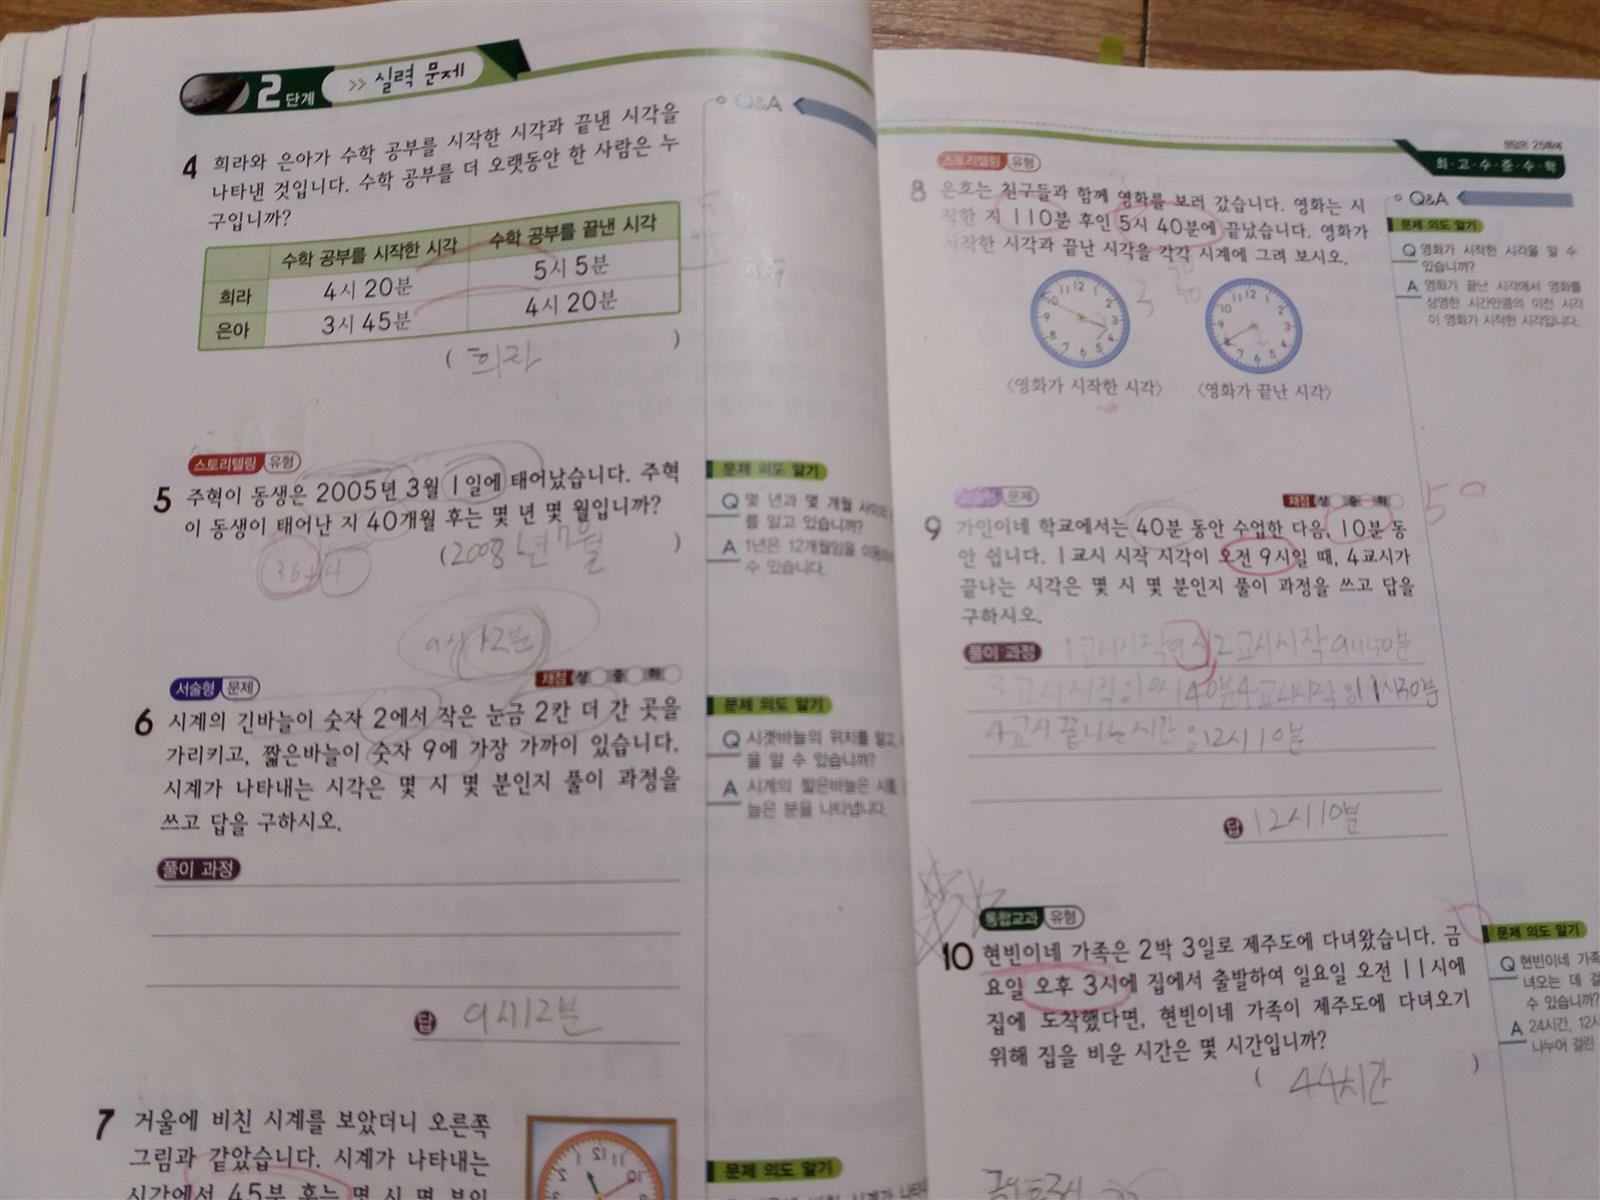 2단계 >> 실력 문제
4 희라와 은아가 수학 공부를 시작한 시각과 끝낸 시각을
나타낸 것입니다. 수학 공부를 더 오랫동안 한 사람은 누
구입니까?
수학 공부를 시작한 시각 수학 공부를 끝낸 시각
희라 4시 20분 5시 5분
은아 3시 45분 4시 20분
( 희라 )
Q&A
스토리텔링 유형
5 주혁이 동생은 2005년 3월 1일에 태어났습니다. 주혁
이 동생이 태어난 지 40개월 후는 몇 년 몇 월입니까?
(2008년 7월 )
36+4
문제 의도 알기
Q 몇 년과 몇 개월 사이의
를 알고 있습니까?
A 1년은 12개월임을 이용하
수 있습니다.
9시 12분
서술형 문제
채점 상 중 하
6 시계의 긴바늘이 숫자 2에서 작은 눈금 2칸 더 간 곳을
가리키고, 짧은바늘이 숫자 9에 가장 가까이 있습니다.
시계가 나타내는 시각은 몇 시 몇 분인지 풀이 과정을
쓰고 답을 구하시오.
풀이 과정
답 9시12분
문제 의도 알기
Q 시곗바늘의 위치를 알고,
을 알 수 있습니까?
A 시계의 짧은바늘은 시를,
늘은 분을 나타냅니다.
7 거울에 비친 시계를 보았더니 오른쪽
그림과 같았습니다. 시계가 나타내는
시각에서 45분 후는 몇 시 몇 분인
문제 의도 알기
정답은 25쪽에
최·고·수·준·수·학
스토리텔링 유형
8 은호는 친구들과 함께 영화를 보러 갔습니다. 영화는 시
작한 지 110분 후인 5시 40분에 끝났습니다. 영화가
시작한 시각과 끝난 시각을 각각 시계에 그려 보시오.
3 50
〈영화가 시작한 시각〉 〈영화가 끝난 시각〉
Q&A
문제 의도 알기
Q 영화가 시작한 시각을 알 수
있습니까?
A 영화가 끝난 시각에서 영화를
상영한 시간만큼의 이전 시각
이 영화가 시작한 시각입니다.
서술형 문제
채점 상 중 하
50
9 가인이네 학교에서는 40분 동안 수업한 다음, 10분 동
안 쉽니다. 1교시 시작 시각이 오전 9시일 때, 4교시가
끝나는 시각은 몇 시 몇 분인지 풀이 과정을 쓰고 답을
구하시오.
풀이 과정 1교시시작 9시, 2교시시작 9시50분
3교시시작 10시 40분 4교시시작 11시30분
4교시 끝나는시간 12시10분
답 12시10분
통합교과 유형
10 현빈이네 가족은 2박 3일로 제주도에 다녀왔습니다. 금
요일 오후 3시에 집에서 출발하여 일요일 오전 11시에
집에 도착했다면, 현빈이네 가족이 제주도에 다녀오기
위해 집을 비운 시간은 몇 시간입니까?
( 44시간 )
문제 의도 알기
Q 현빈이네 가족
녀오는 데 걸
수 있습니까?
A 24시간, 12시
나누어 걸린